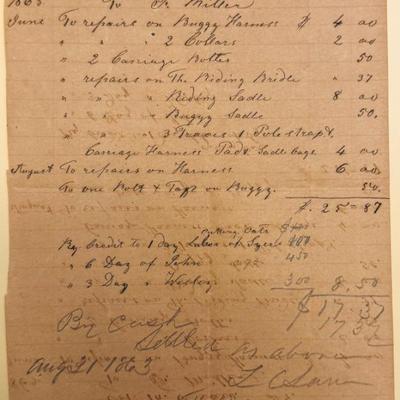 1863 To Miller
June To repairs on Buggy Harness $ 4 00
" " " 2 Collars 2 00
" 2 Carriage Bolts 50
" repairs on The Riding Bridle " 37
" " " Riding Sadle 8 00
" " " Buggy Sadle 50.
" " " 3 Traces 1 Pole strap &
Carriage Harness Pad & Sadle bags 4 00
August To repairs on Harness 6 00
To one Bolt & Tapt on Buggy. 50.
$. 25=87
By Credit to 1 day Labor of 1.00
" 6 Day of John 4.50
" 3 Day " Wesley 3.00 8.50
$17.37
By Cash 17.37
Settled as above
Aug 21 1863